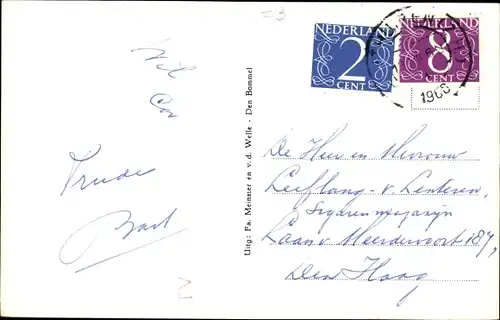 =3
NEDERLAND
2
CENT
NEDERLAND
8
CENT
1968
Wil
Cor
Truus
Bart
Uitg: Fa. Meinster en v.d. Welle - Den Bommel
De Heer en Mevrouw
Leeflang - v. Lenteren,
Sigarenmagazijn
Laan v Meerdervoort 187,
Den Haag